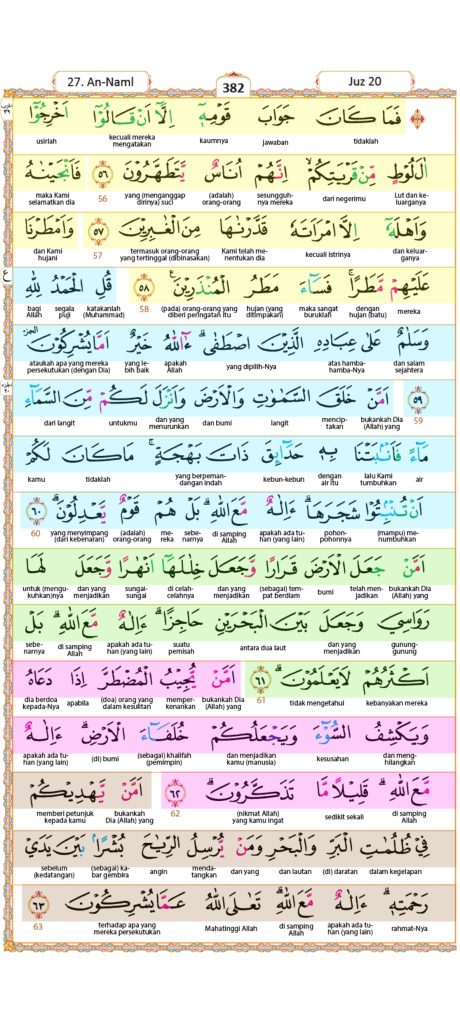 27. An-Naml
382
Juz 20
فَمَا كَانَ جَوَابَ قَوْمِهٖٓ اِلَّآ اَنْ قَالُوْٓا اَخْرِجُوْٓا
tidaklah jawaban kaumnya kecuali mereka mengatakan usirlah
اٰلَ لُوْطٍ مِّنْ قَرْيَتِكُمْۙ اِنَّهُمْ اُنَاسٌ يَّتَطَهَّرُوْنَ ٥٦ فَاَنْجَيْنٰهُ
Lut dan keluarganya dari negerimu sesungguhnya mereka (adalah) orang-orang yang (menganggap dirinya) suci 56 maka Kami selamatkan dia
وَاَهْلَهٗٓ اِلَّا امْرَاَتَهٗ قَدَّرْنٰهَا مِنَ الْغٰبِرِيْنَ ٥٧ وَاَمْطَرْنَا
dan keluarganya kecuali istrinya Kami telah menentukan dia termasuk orang-orang yang tertinggal (dibinasakan) 57 dan Kami hujani
عَلَيْهِمْ مَّطَرًاۚ فَسَاۤءَ مَطَرُ الْمُنْذَرِيْنَ ٥٨ قُلِ الْحَمْدُ لِلّٰهِ
mereka dengan hujan (batu) maka sangat buruklah hujan (yang ditimpakan) (pada) orang-orang yang diberi peringatan itu 58 katakanlah (Muhammad) segala puji bagi Allah
وَسَلٰمٌ عَلٰى عِبَادِهِ الَّذِيْنَ اصْطَفٰىۗ ءٰۤاللّٰهُ خَيْرٌ اَمَّا يُشْرِكُوْنَ
dan salam sejahtera atas hamba-hamba-Nya yang dipilih-Nya apakah Allah yang lebih baik ataukah apa yang mereka persekutukan (dengan Dia)
٥٩ اَمَّنْ خَلَقَ السَّمٰوٰتِ وَالْاَرْضَ وَاَنْزَلَ لَكُمْ مِّنَ السَّمَاۤءِ
59 bukankah Dia (Allah) yang menciptakan langit dan bumi dan yang menurunkan untukmu dari langit
مَاۤءً فَاَنْۢبَتْنَا بِهٖ حَدَاۤىِٕقَ ذَاتَ بَهْجَةٍۚ مَا كَانَ لَكُمْ
air lalu Kami tumbuhkan dengan air itu kebun-kebun yang berpemandangan indah tidaklah kamu
اَنْ تُنْۢبِتُوْا شَجَرَهَاۗ ءَاِلٰهٌ مَّعَ اللّٰهِۗ بَلْ هُمْ قَوْمٌ يَّعْدِلُوْنَۗ ٦٠
(mampu) menumbuhkan pohon-pohonnya apakah ada tuhan (yang lain) di samping Allah sebenarnya mereka (adalah) orang-orang yang menyimpang (dari kebenaran) 60
اَمَّنْ جَعَلَ الْاَرْضَ قَرَارًا وَّجَعَلَ خِلٰلَهَآ اَنْهٰرًا وَّجَعَلَ لَهَا
bukankah Dia (Allah) yang telah menjadikan bumi (sebagai) tempat berdiam dan yang menjadikan di celah-celahnya sungai-sungai dan yang menjadikan untuk (mengukuhkan)nya
رَوَاسِيَ وَجَعَلَ بَيْنَ الْبَحْرَيْنِ حَاجِزًاۗ ءَاِلٰهٌ مَّعَ اللّٰهِۗ بَلْ
gunung-gunung dan yang menjadikan antara dua laut suatu pemisah apakah ada tuhan (yang lain) di samping Allah sebenarnya
اَكْثَرُهُمْ لَا يَعْلَمُوْنَۗ ٦١ اَمَّنْ يُّجِيْبُ الْمُضْطَرَّ اِذَا دَعَاهُ
kebanyakan mereka tidak mengetahui 61 bukankah Dia (Allah) yang memperkenankan (doa) orang yang dalam kesulitan apabila dia berdoa kepada-Nya
وَيَكْشِفُ السُّوْۤءَ وَيَجْعَلُكُمْ خُلَفَاۤءَ الْاَرْضِۗ ءَاِلٰهٌ
dan menghilangkan kesusahan dan menjadikan kamu (manusia) (sebagai) khalifah (pemimpin) (di) bumi apakah ada tuhan (yang lain)
مَّعَ اللّٰهِۗ قَلِيْلًا مَّا تَذَكَّرُوْنَۗ ٦٢ اَمَّنْ يَّهْدِيْكُمْ
di samping Allah sedikit sekali (nikmat Allah) yang kamu ingat 62 bukankah Dia (Allah) yang memberi petunjuk kepada kamu
فِيْ ظُلُمٰتِ الْبَرِّ وَالْبَحْرِ وَمَنْ يُّرْسِلُ الرِّيٰحَ بُشْرًاۢ بَيْنَ يَدَيْ
dalam kegelapan (di) daratan dan lautan dan yang mendatangkan angin (sebagai) kabar gembira sebelum (kedatangan)
رَحْمَتِهٖۗ ءَاِلٰهٌ مَّعَ اللّٰهِۗ تَعٰلَى اللّٰهُ عَمَّا يُشْرِكُوْنَ ٦٣
rahmat-Nya apakah ada tuhan (yang lain) di samping Allah Mahatinggi Allah terhadap apa yang mereka persekutukan 63